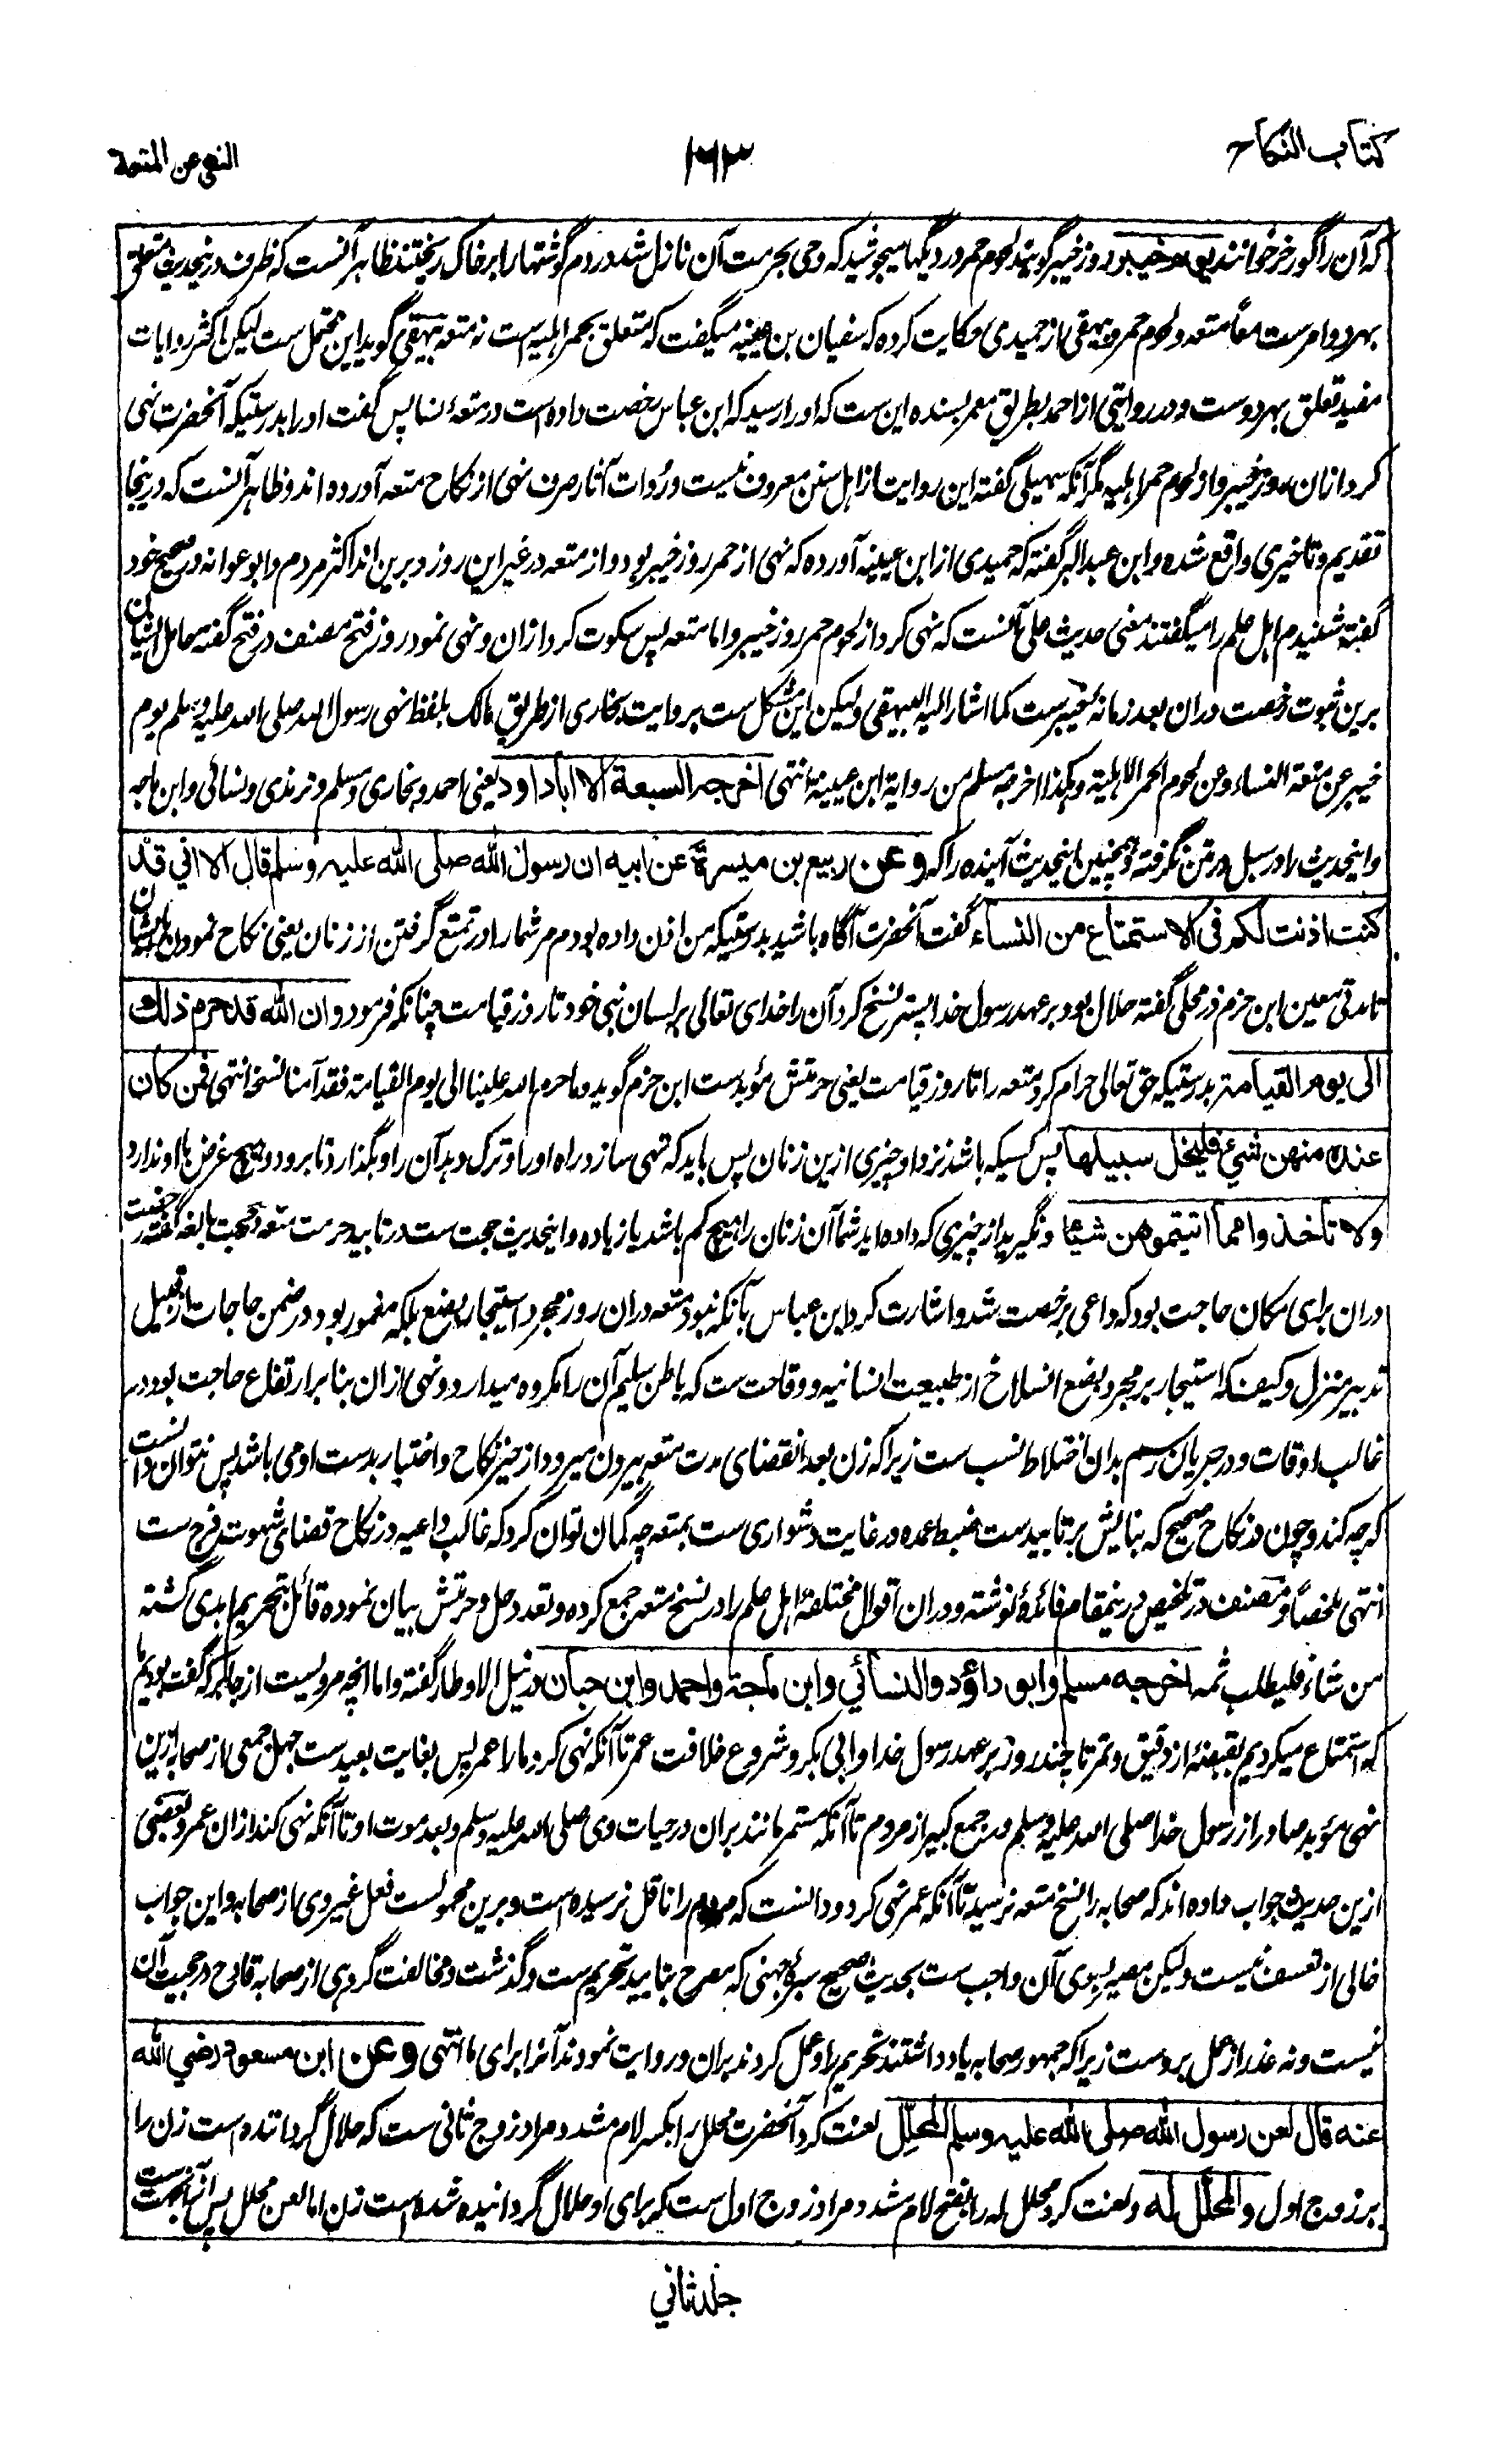 كتاب النكاح
١٦٣
النهي عن المتعة
که آن را گورخر خوانند يوم خيبر روز خیبر گویند لحوم حمر در دیگها میجوشید که وحی بحرمت آن نازل شد و مردم گوشتها را بر خاک ریختند ظاهر آنست که ظرف درینحدیث متعلق
بهر دو امرست معاً متعه و لحوم حمر و بیهقی از حمیدی حکایت کرده که سفیان بن عیینه میگفت که متعلق بحمر اهلیه است نه متعه بیهقی گوید این محتمل ست لیکن اکثر روایات
مفید تعلق بهر دوست و در روایتی از احمد بطریق معمر بسنده این ست که او را رسید که ابن عباس رخصت داده است در متعهٔ نسا پس گفت او را بدرستیکه آنحضرت نهی
کرد ازان روز خیبر و از لحوم حمر اهلیه مگر آنکه سهیلی گفته این روایت از اهل سنن معروف نیست و رُوات آثار صرف نهی از نکاح متعه آورده اند و ظاهر آنست که درینجا
تقدیم و تاخیری واقع شده و ابن عبد البر گفته که حمیدی از ابن عیینه آورده که نهی از حمر روز خیبر بود و از متعه در غیر این روز و برین اند اکثر مردم و ابو عوانه در صحیح خود
گفته شنیدم اهل علم را میگفتند معنی حدیث علی آنست که نهی کرد از لحوم حمر روز خیبر و اما متعه پس سکوت کرد ازان و نهی نمود روز فتح مصنف در فتح گفته حامل ایشان
برین ثبوت رخصت دران بعد زمانهٔ خیبرست کما اشار الیه البیهقی ولیکن این مشکل ست بروایت بخاری از طریق مالک بلفظ نهی رسول الله صلی الله علیه وسلم یوم
خیبر عن متعة النساء وعن لحوم الحمر الاهلیة وهکذا اخرجه مسلم من روایة ابن عیینة انتهی اخرجه السبعة الا ابا داود یعنی احمد و بخاری و مسلم و ترمذی و نسائی و ابن ماجه
و اینحدیث را در سبل در متن نگرفته و همچنین اینحدیث آینده را که وعن ربيع بن ميسرة عن ابيه ان رسول الله صلى الله عليه وسلم قال الا اني قد
كنت اذنت لكم في الاستمتاع من النساء گفت آنحضرت آگاه باشید بدرستیکه من اذن داده بودم مر شما را در تمتع گرفتن از زنان یعنی نکاح نمودن با ایشان
تا مدتی معین ابن حزم در محلی گفته حلال بود بر عهد رسول خدا پستر نسخ کرد آن را خدای تعالی بر لسان نبی خود تا روز قیامت چنانکه فرمود وان الله قد حرم ذلك
الى يوم القيامة بدرستیکه حق تعالی حرام کرد متعه را تا روز قیامت یعنی حرمتش مؤبدست ابن حزم گوید وما حرم الله علینا الی یوم القیامة فقد آمنا نسخه انتهی فمن كان
عنده منهن شيء فليخل سبيلها پس کسیکه باشد نزد او چیزی ازین زنان پس باید که تهی سازد راه او را و ترک دهد آن را و بگذارد تا برود و هیچ غرض با او ندارد
ولا تأخذوا مما اتيتموهن شيئا و نگیرید از چیزی که داده اید شما آن زنان را هیچ کم باشد یا زیاده و اینحدیث حجت ست در تابید حرمت متعه در حجت بالغه گفته رخصت
دران برای مکان حاجت بود که داعی برخصت شد و اشارت کرد ابن عباس بآنکه نبود متعه دران روز مجرد استیجار بضع بلکه مغمور بود در ضمن حاجات از قبیل
تدبیر منزل و کیف که استیجار بر مجرد بضع انسلاخ از طبیعت انسانیه و وقاحت ست که باطن سلیم آن را مکروه میدارد و نهی ازان بنا بر ارتفاع حاجت بود در
غالب اوقات و در جریان رسم بدان اختلاط نسب ست زیرا که زن بعد انقضای مدت متعه بیرون میرود از حیز نکاح و اختیار بدست او می باشد پس نتوان دانست
که چه کند و چون در نکاح صحیح که بنایش بر تابید ست ضبط عده در غایت دشواری ست بمتعه چه گمان توان کرد که غالب داعیه در نکاح قضای شهوت فرج ست
انتهی ملخصاً و مصنف در تلخیص درینمقام فائدهٔ نوشته و دران اقوال مختلفهٔ اهل علم را در نسخ متعه جمع کرده و تعدد حل و حرمتش بیان نموده قائل بتحریم ابدی گشته
من شاء فليطلب ثمه اخرجه مسلم وابو داؤد والنسائي وابن ماجة واحمد وابن حبان در نیل الاوطار گفته و اما آنچه مرویست از جابر که گفت بودیم ما
که استمتاع میکردیم بقبضهٔ از دقیق و تمر تا چند روز بر عهد رسول خدا و ابی بکر و شروع خلافت عمر تا آنکه نهی کرد ما را عمر پس بغایت بعید ست جهل جمعی از صحابه ازین
نهی مؤبد صادر از رسول خدا صلی الله علیه وسلم در جمع کبیر از مردم تا آنکه مستمر مانند بران در حیات وی صلی الله علیه وسلم و بعد موت او تا آنکه نهی کند ازان عمر و بعضی
ازین حدیث جواب داده اند که صحابه را نسخ متعه نرسید تا آنکه عمر نهی کرد و دانست که مردم را ناقل نرسیده است و برین محمولست فعل غیر وی از صحابه و این جواب
خالی از تعسف نیست ولیکن مصیر بسوی آن واجب ست بحدیث صحیح سبرهٔ جهنی که مصرح بتابید تحریم ست و گذشت و مخالفت گروهی از صحابه قادح در حجیت آن
نیست و نه عذر از عمل بروست زیرا که جمهور صحابه یاد داشتند تحریم را و عمل کردند بران و روایت نمودند آنرا برای ما انتهی وعن ابن مسعود رضي الله
عنه قال لعن رسول الله صلى الله عليه وسلم المحلِّل لعنت کرد آنحضرت محلل را بکسر لام مشدد مراد زوج ثانی ست که حلال گردانده است زن را
بر زوج اول والمحلَّل له و لعنت کرد محلل له را بفتح لام مشدد مراد زوج اول ست که برای او حلال گردانیده شده است زن اما لعن محلل پس ازانجهت ست
جلد ثاني